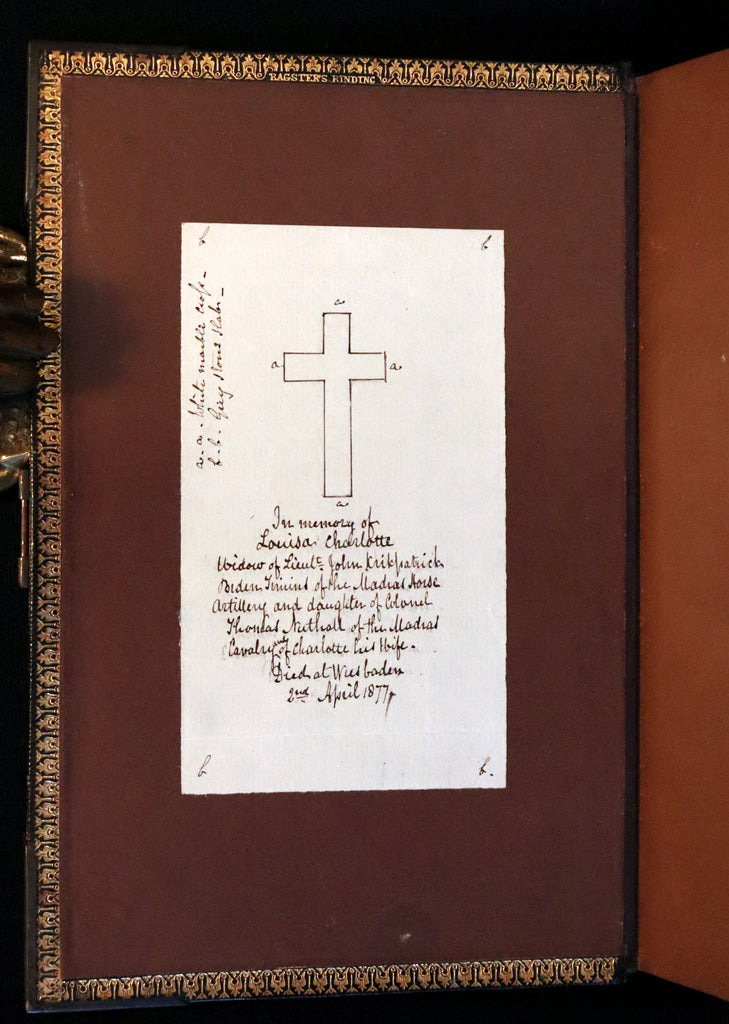 BAGSTER'S BINDING
b
b
a-a- White marble cross-
b-b- Grey Stone Slab-
a
a
a
a
In memory of
Louisa Charlotte
Widow of Lieut. John Kirkpatrick
Biden Timins of the Madras Horse
Artillery and daughter of Colonel
Thomas Nuthall of the Madras
Cavalry and of Charlotte his Wife.
Died at Wiesbaden
2nd April 1877
b
b.